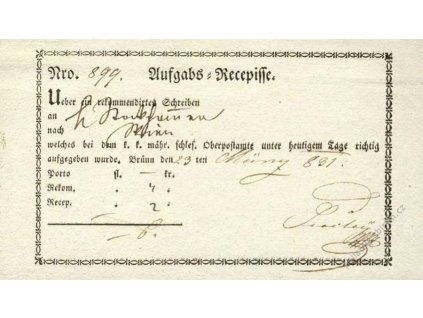 Nro. 899. Aufgabs-Recepisse.
Ueber ein rekommendirtes Schreiben
an
nach Wien
welches bei dem k. k. mähr. schles. Oberpostamte unter heutigem Tage richtig
aufgegeben wurde. Brünn den 23 ten März 831.
Porto fl. — kr.
Rekom. „ 4 „
Recep. „ 2 „
6.